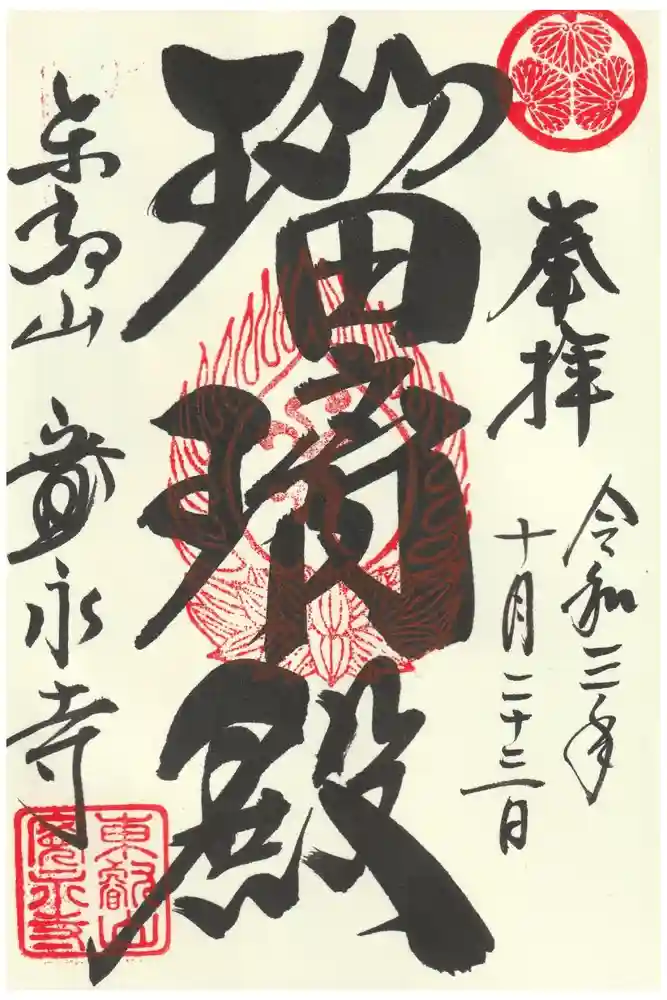 奉拝
令和三年
十月二十三日
瑠璃殿
東叡山 寛永寺
東叡山
寛永寺